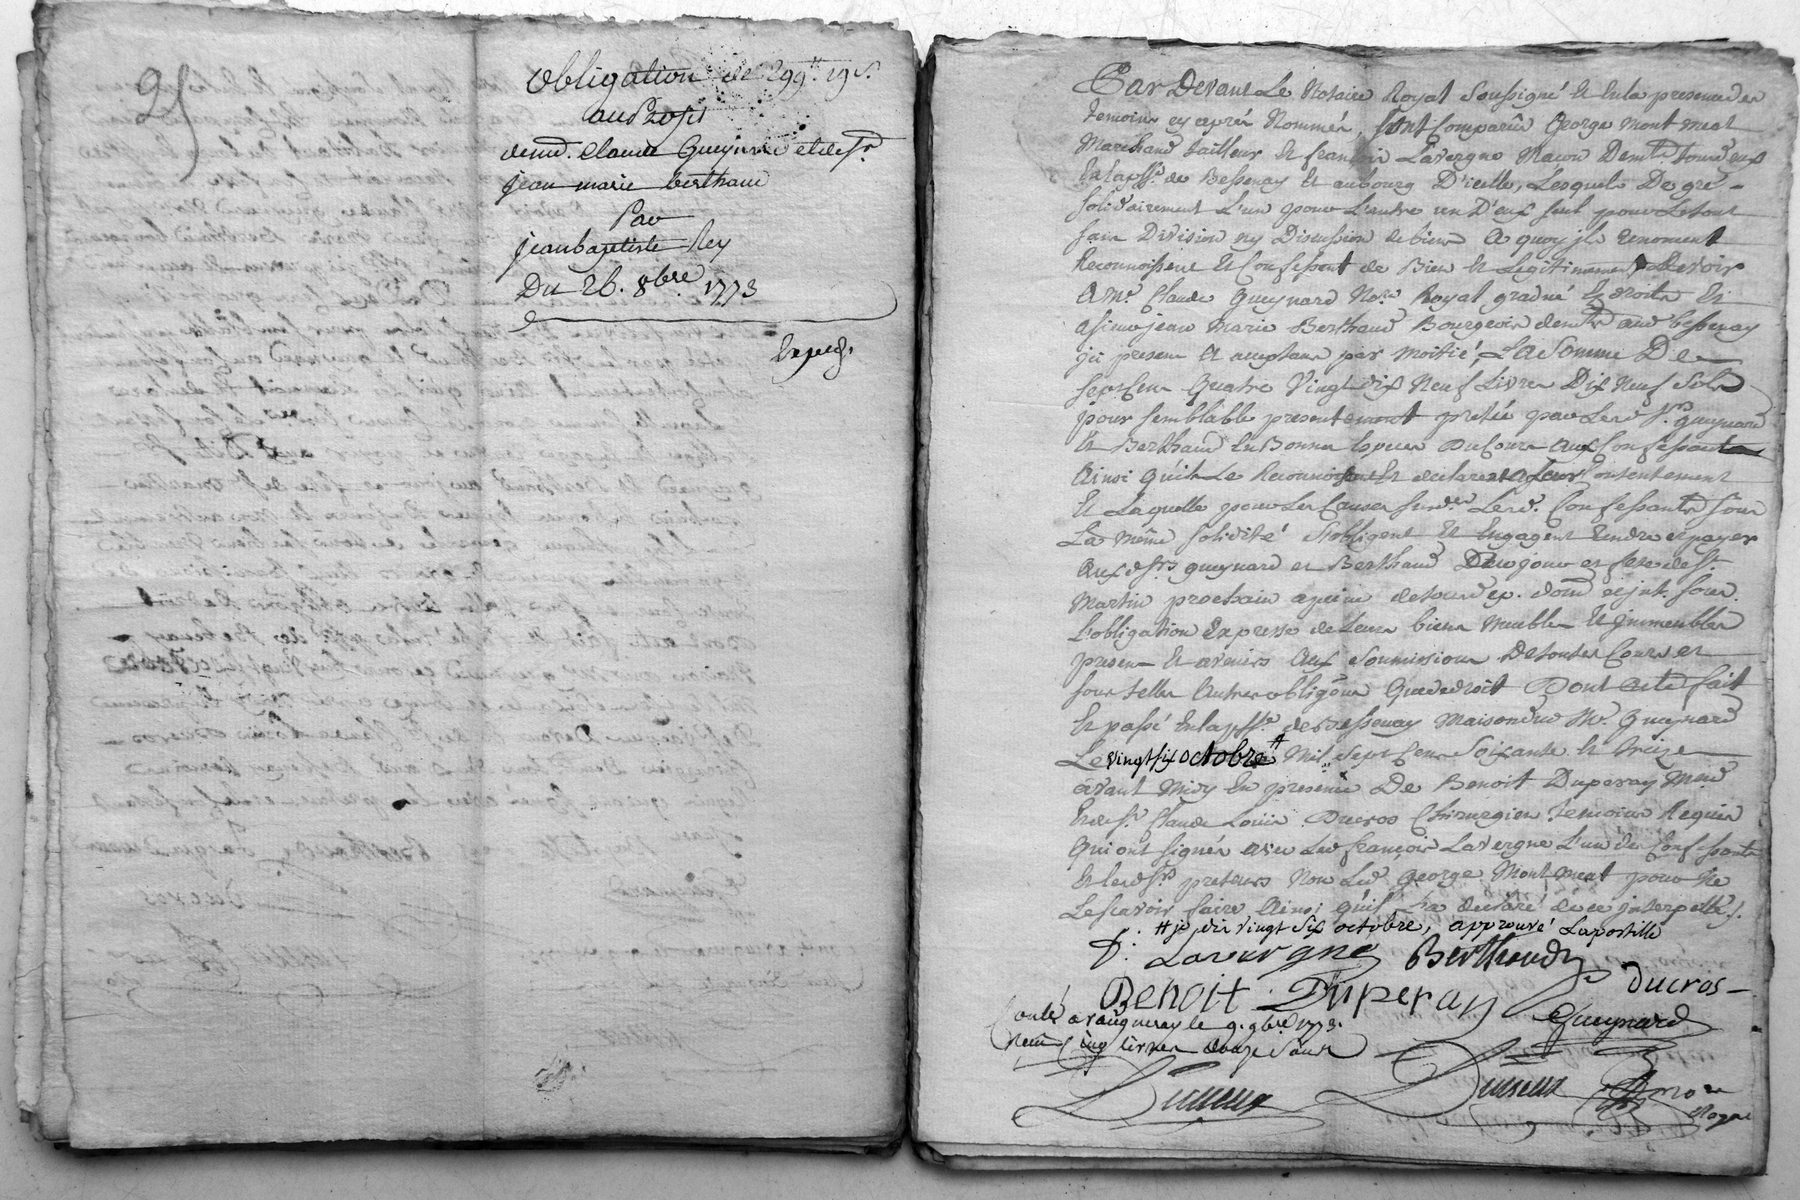 95
obligation de 299ᵗᵗ 19 s.
au proffit
de md. Claude Gueynard et de sr.
jean marie berthaud
Par
jean baptiste Rey
Du 26. 8bre. 1773
Expedié.
Par Devant Le Notaire Royal Soussigné Et En la presence des
temoins cy aprés Nommés, sont Comparûs George montmeat
Marchand tailleur Et françois Lavergne Macon Demts tous deux
En la psse. de Bessenay Et au bourg D'icelle, Lesquels De gré
solidairement L'un pour L'autre un D'eux seul pour Le tout
sans Division ny Discussion de biens A quoy ils renoncent
Reconnoissent Et Confessent de Bien Et Legitimement Devoir
A me. Claude Gueynard Nore. Royal gradué Es droits Et
a sieur jean Marie Berthaud Bourgeois demts aud bessenay
jci present Et acceptans par moitié, La Somme De
sept Cens Quatre Vingt dix Neuf Livres Dix Neuf Sols
pour semblable presentement pretée par Lesd. srs. gueynard
Et Berthaud En Bonnes Especes Du Cours aux Confessants
Ainsi qu'ils Le Reconnoissent Et declarent a Leur Contentement
Et Laquelle pour Les Causes susdes. Lesd. Confessants sous
La même solidité s'obligent Et Engagent Rendre et payer
aux dsrs gueynard et Berthaud Dieu jour et feste de st.
Martin prochain a peine de tous dep. dom. et jnt. sous
L'obligation Expresse de Leurs biens meubles Et jmmeubles
presens Et avenirs Aux soumissions De toutes Cours et
sous telles Autres obligôns Que de droit Dont acte fait
Et passé En la psse. de Bessenay Maison dud Me. Gueynard
Le vingt six octobre # Mil sept Cens Soixante Et treize
avant midy En presence De Benoit Duperay Md.
Et de sr. Claude Loüis Ducros Chirurgien temoins Requis
Qui ont signés avec Led françois Lavergne L'un des Confessants
Et lesd srs. preteurs Non Led George Montmeat pour Ne
Le scavoir faire Ainsi qu'il L'a declaré de ce interpellé ./.
# je dis vingt six octobre, approuvé La postille
f. Lavergne Berthaud
Benoit Duperay ducros
Gueynard
Conlé a vaugneray le 9. 9bre. 1773.
Reçu Cinq livres douze sous
nore
Royal